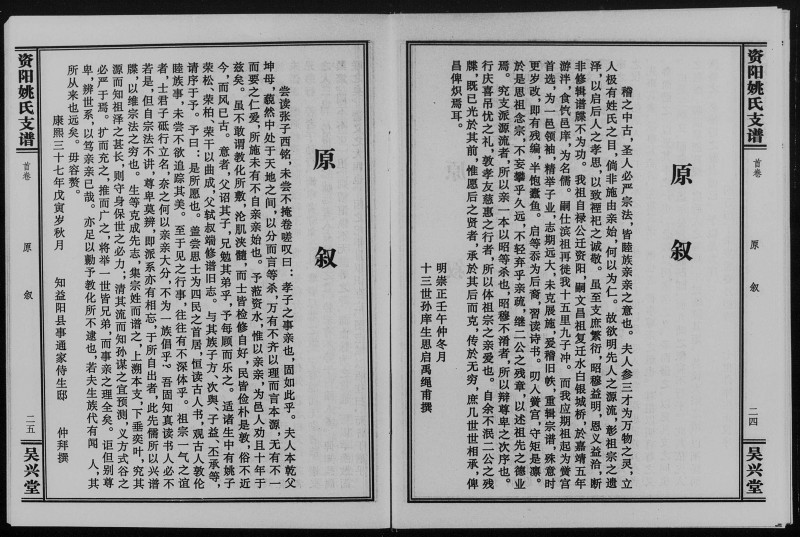 资阳姚氏支谱
首卷
原叙
二四
吴兴堂
原叙
稽之中古，圣人必严宗法，皆睦族亲亲之意也。夫人参三才为万物之灵，立
人极有姓氏之目，倘非施由亲始，何以为仁。故欲明先人之源流，彰祖宗之遗
泽，以启后人之孝思，以致禋祀之诚敬。虽至支庶繁衍，昭穆益明，恩义益洽，断
非修辑谱牒不为功。我祖自禄公迁资阳，嗣文昌祖复迁水白银城桥，於嘉靖五年
游泮，食饩邑庠，为名儒。嗣仕滨祖再徙我十五里九子冲。而我应期祖起为黉宫
首选，为一邑领袖，精举子业，志期远大，未克展施，爰稽旧帙，重辑宗谱，殊意时
更岁改，即有残编，半饱蠹鱼。启等忝为后裔，習读诗书。叨人黉宫，守矩是凛。
於是思祖念宗，不妄攀乎久远，不轻弃乎亲疏，继二公之残章，以述祖先之德业
焉。究支派源流者，所以亲一本以昭等杀也，昭穆不淆者，所以辩尊卑之次序也。
行庆喜吊忧之礼，敦孝友慈惠之行者，所以体祖宗之亲爱也。自余不泯二公之残
牒，既已光於其前，惟愿后之贤者，承於其后而克，传於无穷，庶几世世相承，俾
昌俾炽焉耳。
明崇正壬午仲冬月
十三世孙庠生思启禹绳甫撰
原叙
尝读张子西铭，未尝不掩卷嗟叹曰：孝子之事亲也，固如此乎。夫人本乾父
坤母，藐然中处于天地之间，以分而言等杀，万有不齐以理而言本源，无有不一
而要之仁爱，所施未有不自亲亲始也。予蒞资水，惟以亲亲，为邑人劝且十年于
兹矣。虽不敢谓教化所敷，沦肌浃髓，而士皆检修自好，民皆俭朴是敦，俗不近
今，而风已古。意者，父诏其子，兄勉其弟乎，予每顾而乐之。适诸生中有姚子
荣松、荣柏、荣干以曲成，父轼叔端修谱旧志。与其族子方、次舆、子益、丕承等，
请序于予。予曰：是所愿也。盖尝思士为四民之首居，恒读古人书，观古人敦伦
睦族事，未尝不欲追踪其美。至于见之行事，往往有不深体乎。祖宗一气之谊
者，士君子砥行立名，奈之何以亲亲大分，不为一族倡乎？吾固知真读书人必不
若是，但自宗法不讲，尊卑莫辨，即派系亦有相忘、于所自出者，此先儒所以兴谱
牒，以维宗法之穷也。生等克成先志，集宗姓而谱之，上溯本支、下垂奕叶，究其
源而知祖泽之甚长，则守身保世之必力；清其流而知孙谋之宜预测，义方式谷之
必严于焉。扩而充之，推而广之，将举一世皆兄弟，而事亲之理全矣。讵但别尊
卑，辨世系，以笃亲亲已哉。亦足以勷予教化所不逮也，若夫生族代有闻人，其
所从来也远矣。毋容赘。
康熙三十七年戊寅岁秋月
知益阳县事通家侍生邸仲拜撰
资阳姚氏支谱
首卷
原叙
二五
吴兴堂